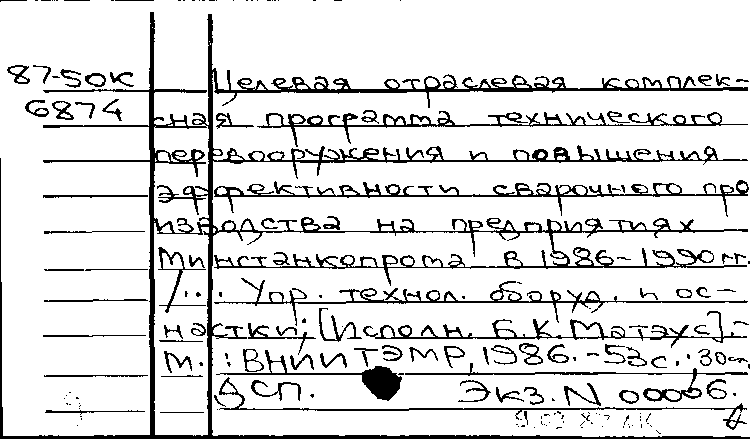 87-50к
6874
Целевая отраслевая комплек-
сная программа технического
перевооружения и повышения
эффективности сварочного про
изводства на предприятиях
Минстанкопрома в 1986-1990 гг.
/... Упр. технол. оборуд. и ос-
настки; [Исполн. Б.К. Матэус].-
М.: ВНИИТЭМР, 1986.-53с.; 30см.
ДСП. Экз. N 00066.